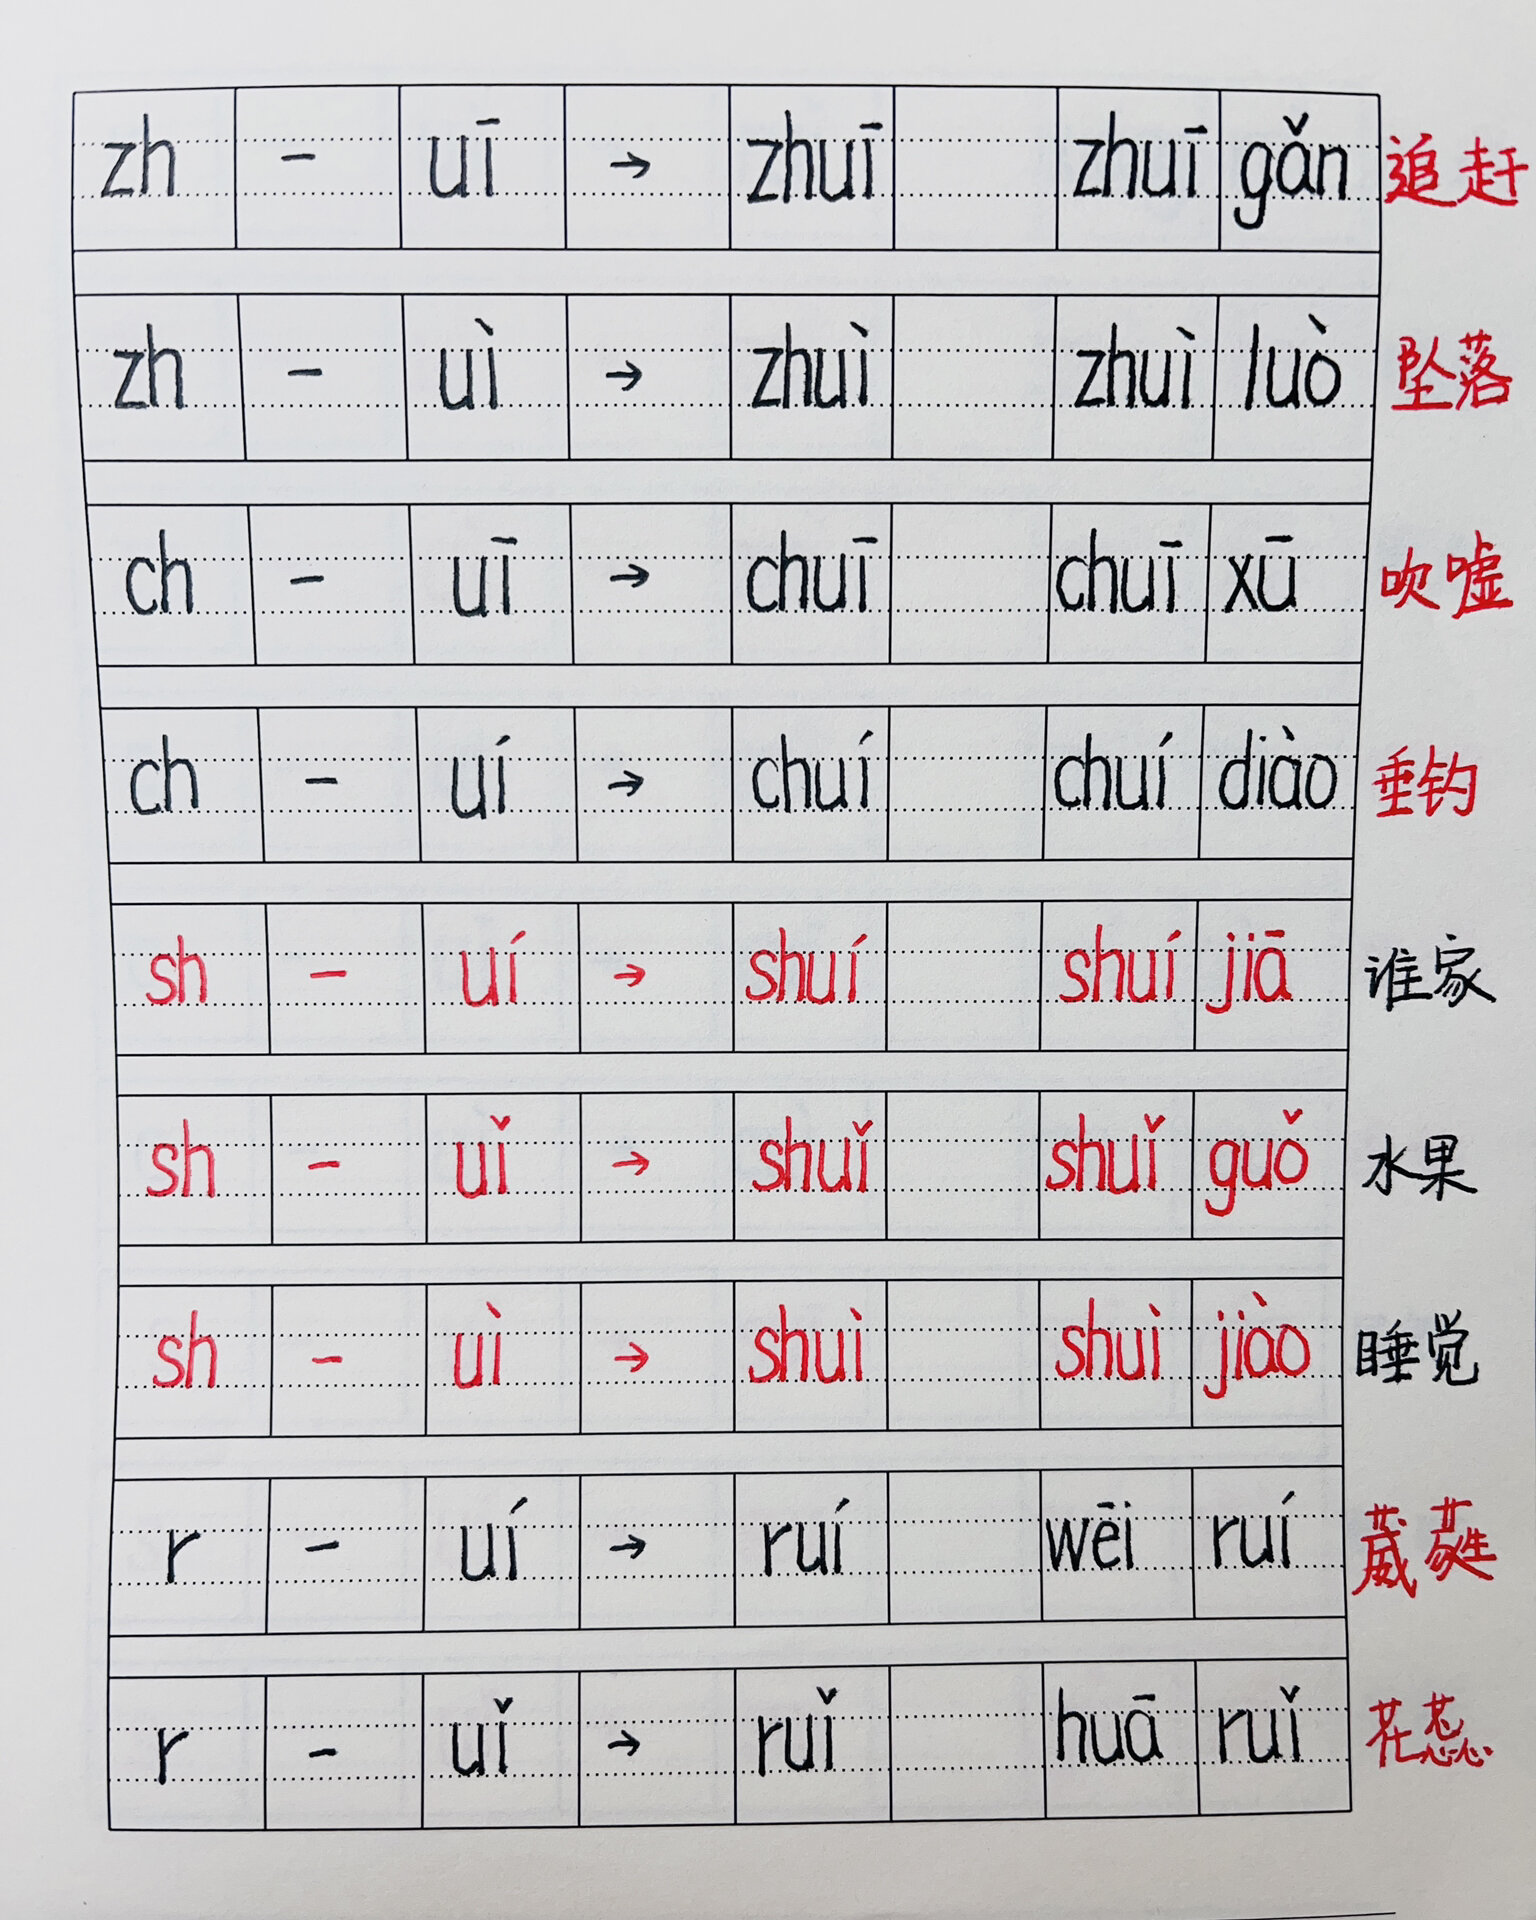 zh - uī → zhuī zhuī gǎn 追赶
zh - uì → zhuì zhuì luò 坠落
ch - uī → chuī chuī xū 吹嘘
ch - uí → chuí chuí diào 垂钓
sh - uí → shuí shuí jiā 谁家
sh - uǐ → shuǐ shuǐ guǒ 水果
sh - uì → shuì shuì jiào 睡觉
r - uí → ruí wēi ruí 葳蕤
r - uǐ → ruǐ huā ruǐ 花蕊